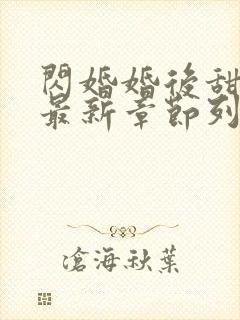 閃婚婚後甜
最新章節列
滄海秋葉